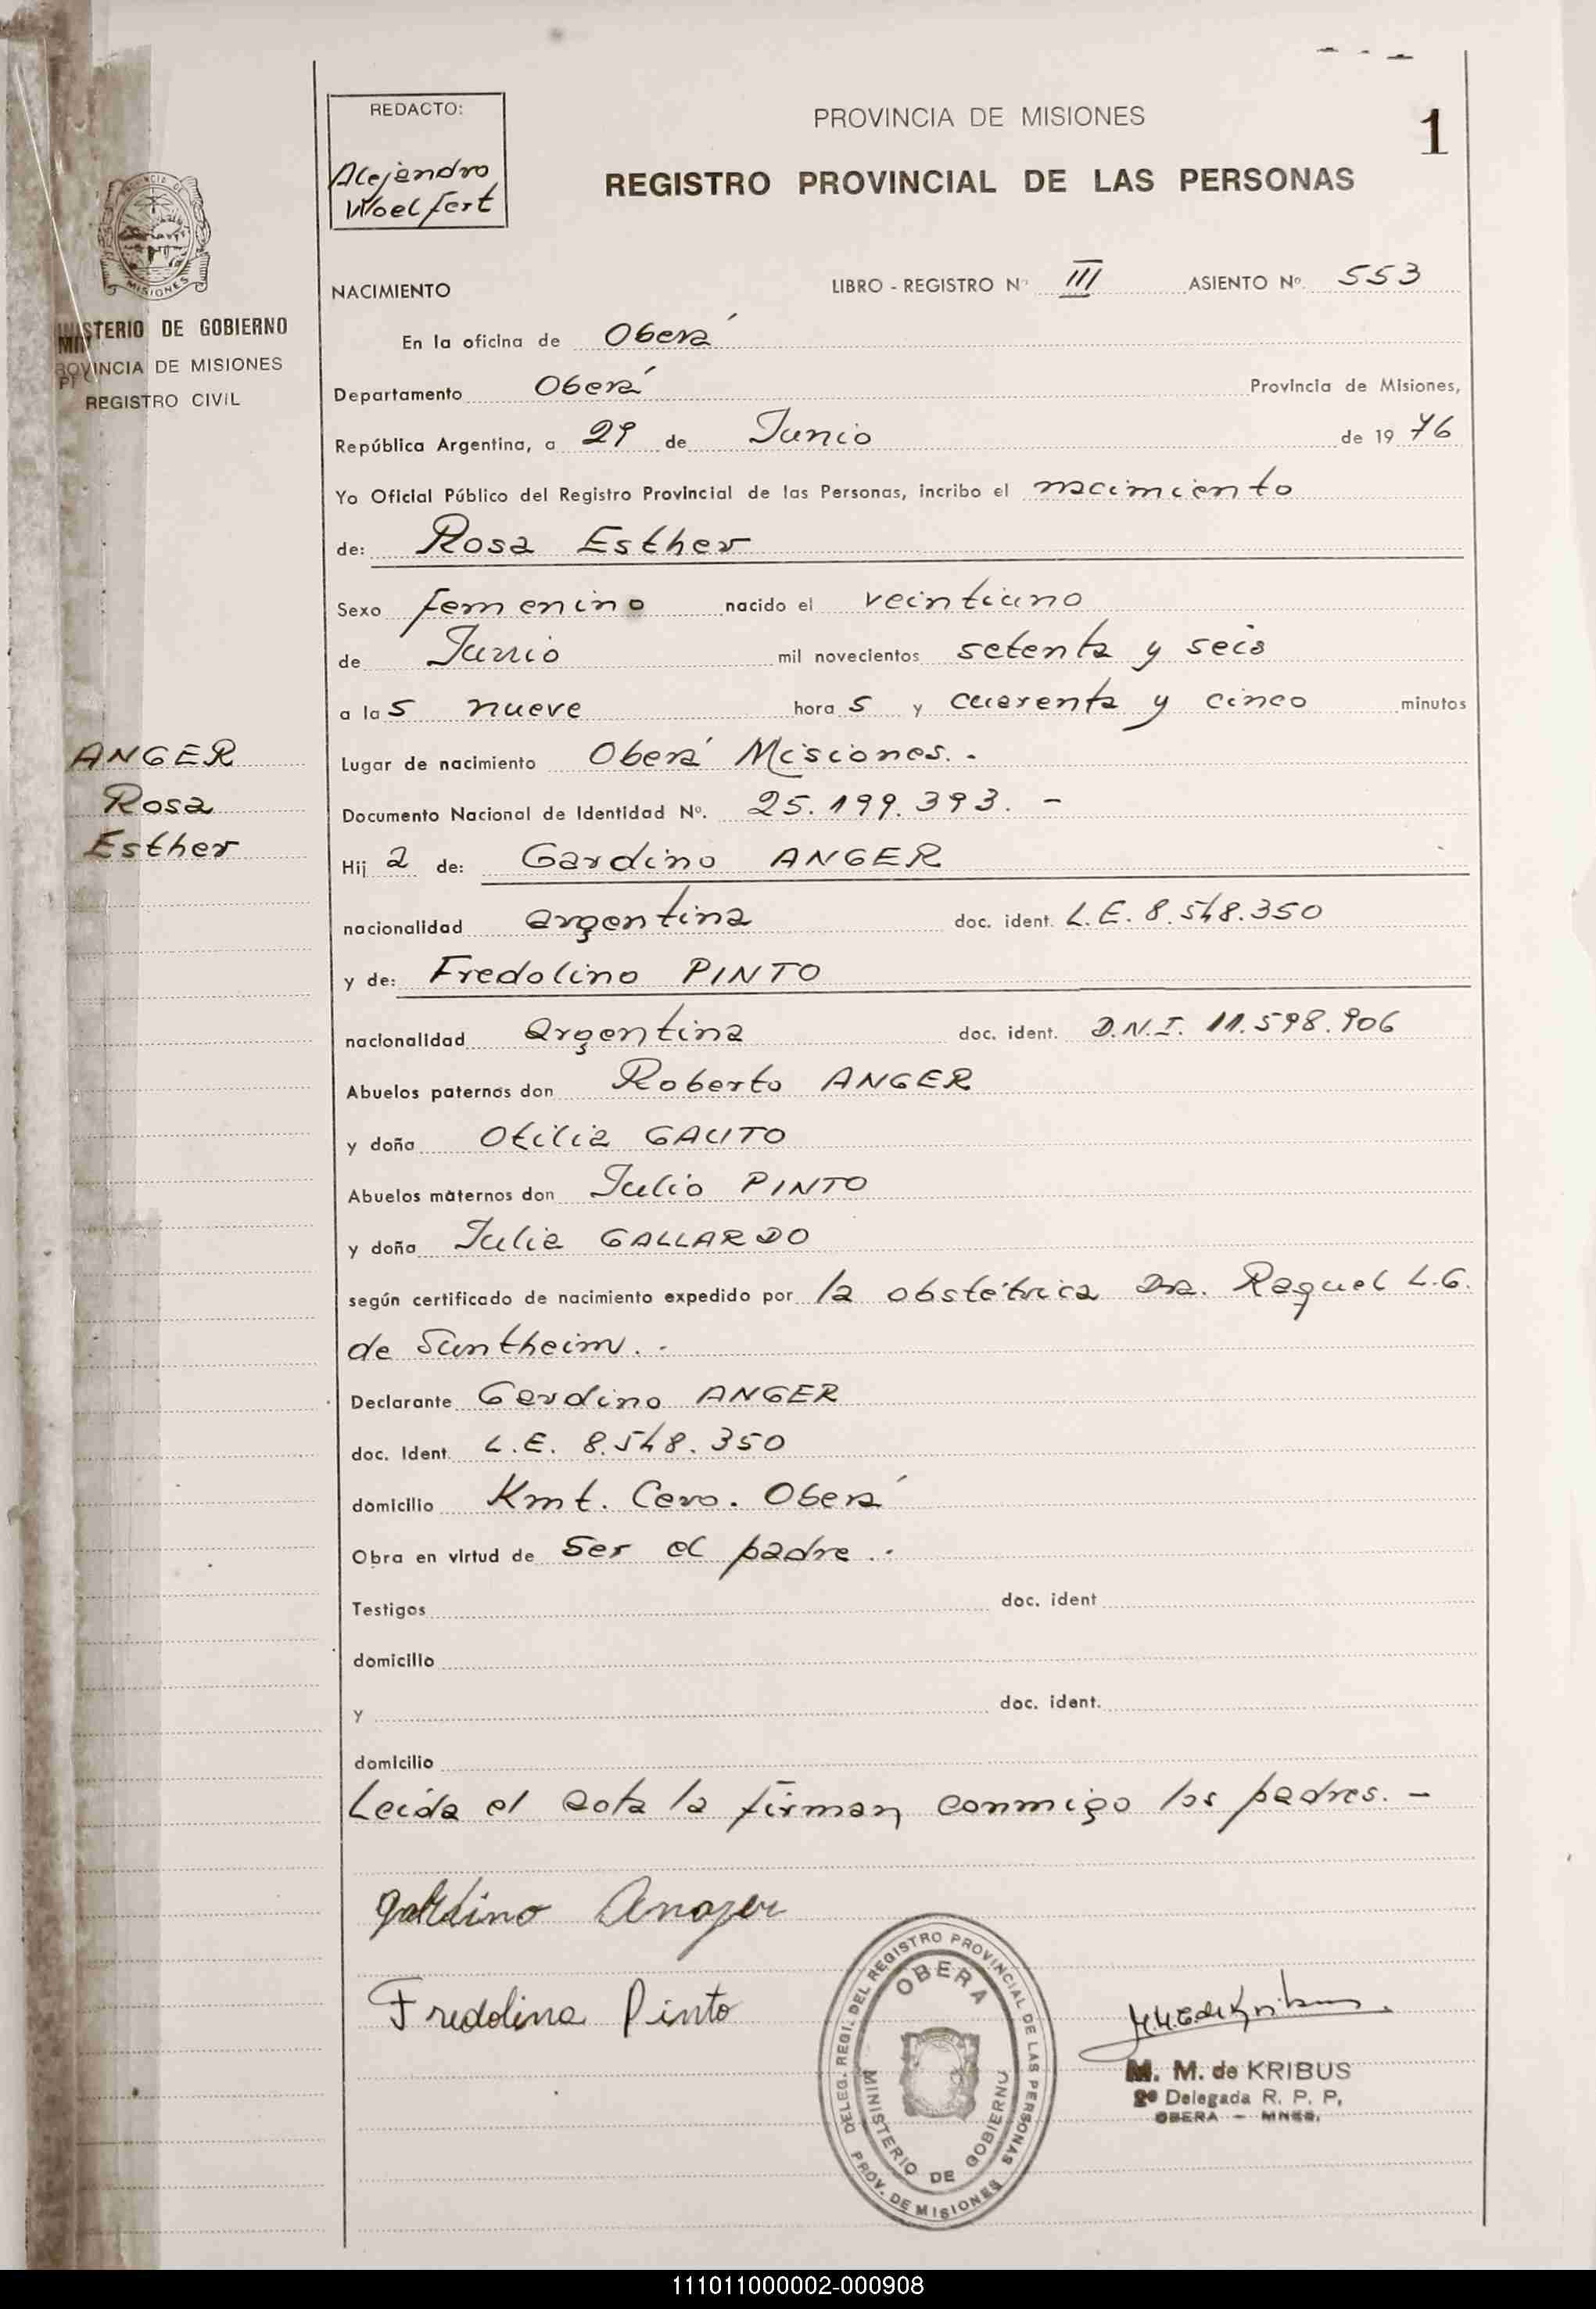 REDACTO:
Alejandro
Woelfert
PROVINCIA DE MISIONES
1
REGISTRO PROVINCIAL DE LAS PERSONAS
MISIONES
MINISTERIO DE GOBIERNO
PROVINCIA DE MISIONES
REGISTRO CIVIL
NACIMIENTO LIBRO - REGISTRO Nº III ASIENTO Nº. 553
En la oficina de Oberá
Departamento Oberá Provincia de Misiones,
República Argentina, a 29 de Junio de 19 76
Yo Oficial Público del Registro Provincial de las Personas, incribo el nacimiento
de: Rosa Esther
Sexo femenino nacido el veintiuno
de Junio mil novecientos setenta y seis
a las nueve horas y cuarenta y cinco minutos
ANGER
Rosa
Esther
Lugar de nacimiento Oberá Misiones. -
Documento Nacional de Identidad Nº. 25.199.393. -
Hija de: Gardino ANGER
nacionalidad argentina doc. ident. L.E. 8.548.350
y de: Fredolino PINTO
nacionalidad argentina doc. ident. D.N.I. 11.598.906
Abuelos paternos don Roberto ANGER
y doña Otilia GAUTO
Abuelos maternos don Julio PINTO
y doña Julia GALLARDO
según certificado de nacimiento expedido por la obstétrica Dra. Raquel L.G.
de Suntheim. -
Declarante Gardino ANGER
doc. Ident. L.E. 8.548.350
domicilio Kmt. Cero. Oberá
Obra en virtud de ser el padre. -
Testigos doc. ident
domicilio
y doc. ident.
domicilio
Leída el acta la firman conmigo los padres. -
Galdino Anger
Fredolina Pinto
DELEG. REGI. DEL REGISTRO PROVINCIAL DE LAS PERSONAS
OBERA
MINISTERIO DE GOBIERNO
PROV. DE MISIONES
M. M. de KRIBUS
2º Delegada R. P. P.
OBERA - MNES.
111011000002-000908